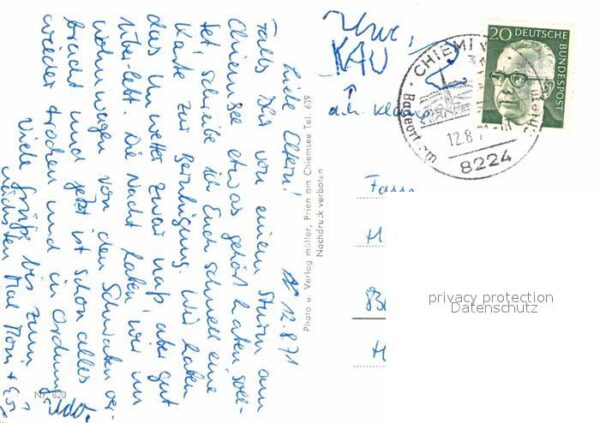 12.8.71
Liebe Eltern!
Falls Ihr von einem Sturm am
Chiemsee etwas gehört haben soll-
tet, schreibe ich Euch schnell eine
Karte zur Beruhigung. Wir haben
das Unwetter zwar naß, aber gut
überlebt. Die Nacht haben wir im
Wohnwagen von den Schwaben ver-
bracht und jetzt ist schon alles
wieder trocken und in Ordnung.
Viele Grüße bis zum
nächsten Mal
Udo
Nr. 820
Photo u. Verlag müller, Prien am Chiemsee Tel. 639
Nachdruck verboten
KAU
d.h.
20 DEUTSCHE
BUNDESPOST
CHIEMI
Badeort am
12.8.
8224
Fam
H
H
privacy protection
Datenschutz